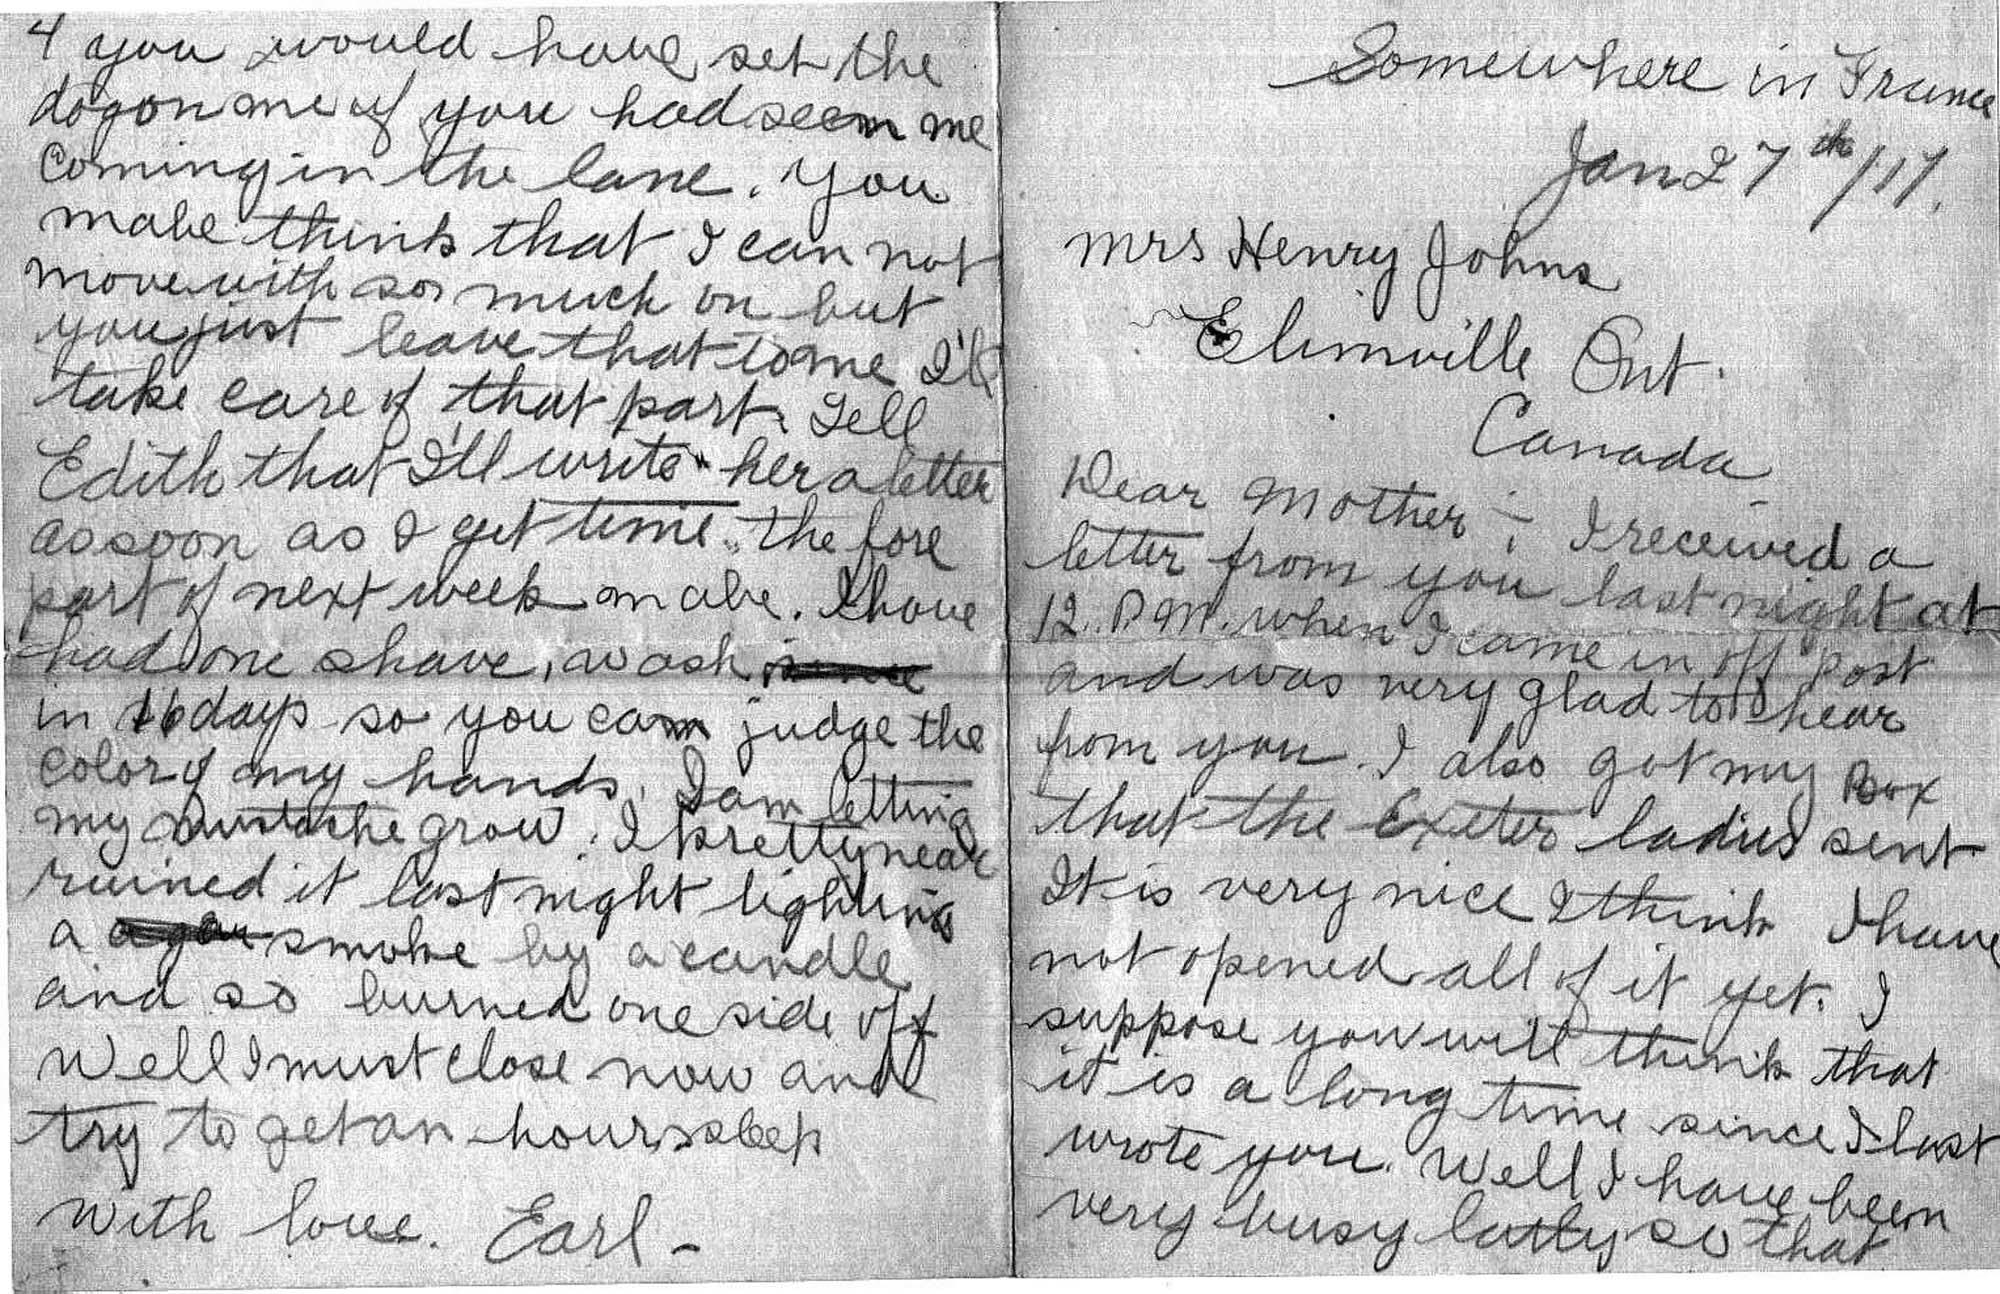 Somewhere in France
Jan 27th/17.
Mrs Henry Johns
Elimville Ont.
Canada
Dear Mother:- I received a
letter from you last night at
12. P.M. when I came in off post
and was very glad to hear
from you. I also got my Box
that the Exeter ladies sent
It is very nice I think I have
not opened all of it yet. I
suppose you will think that
it is a long time since I last
wrote you. Well I have been
very busy latly so that
4 you would have set the
dog on me if you had seem me
coming in the lane. You
mabe think that I can not
move with so much on but
you just leave that to me I'll
take care of that part. Tell
Edith that I'll write her a letter
as soon as I get time. the fore
part of next week mabe. I have
had one shave, wash
in 16 days so you cam judge the
color of my hands. I am letting
my mustache grow. I pretty near
ruined it last night lighting
a smoke by a candle
and so burned one side off
Well I must close now and
try to get an hours sleep
with love. Earl-